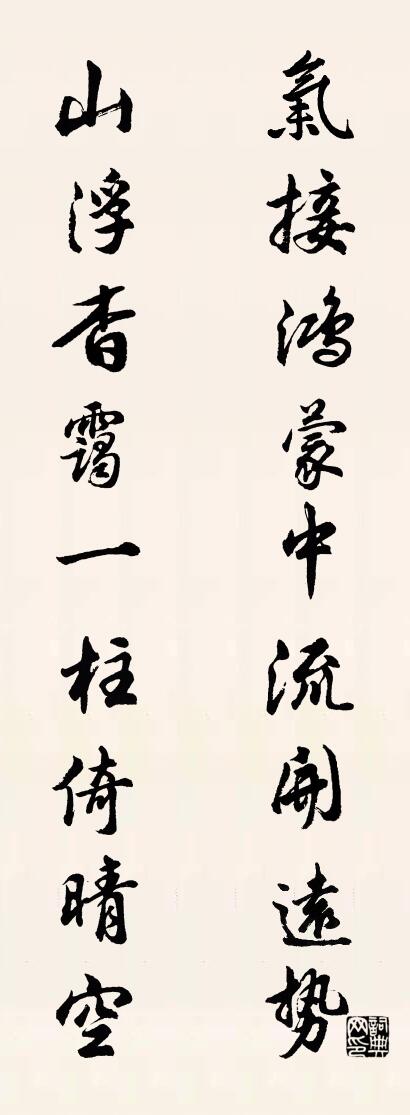 氣接鴻蒙中流開遠勢
山浮杳靄一柱倚晴空
詞典网印